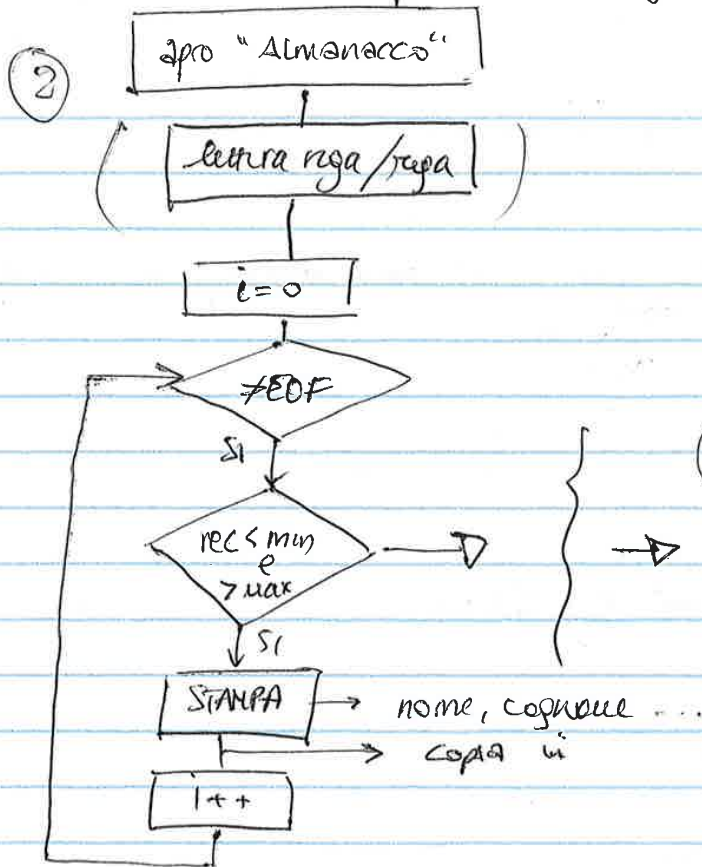 2
apro "Almanacco"
( lettura riga/riga )
i=0
≠EOF
SI
rec < min
e
> max
SI
STAMPA → nome, cognome ...
copia in
i++